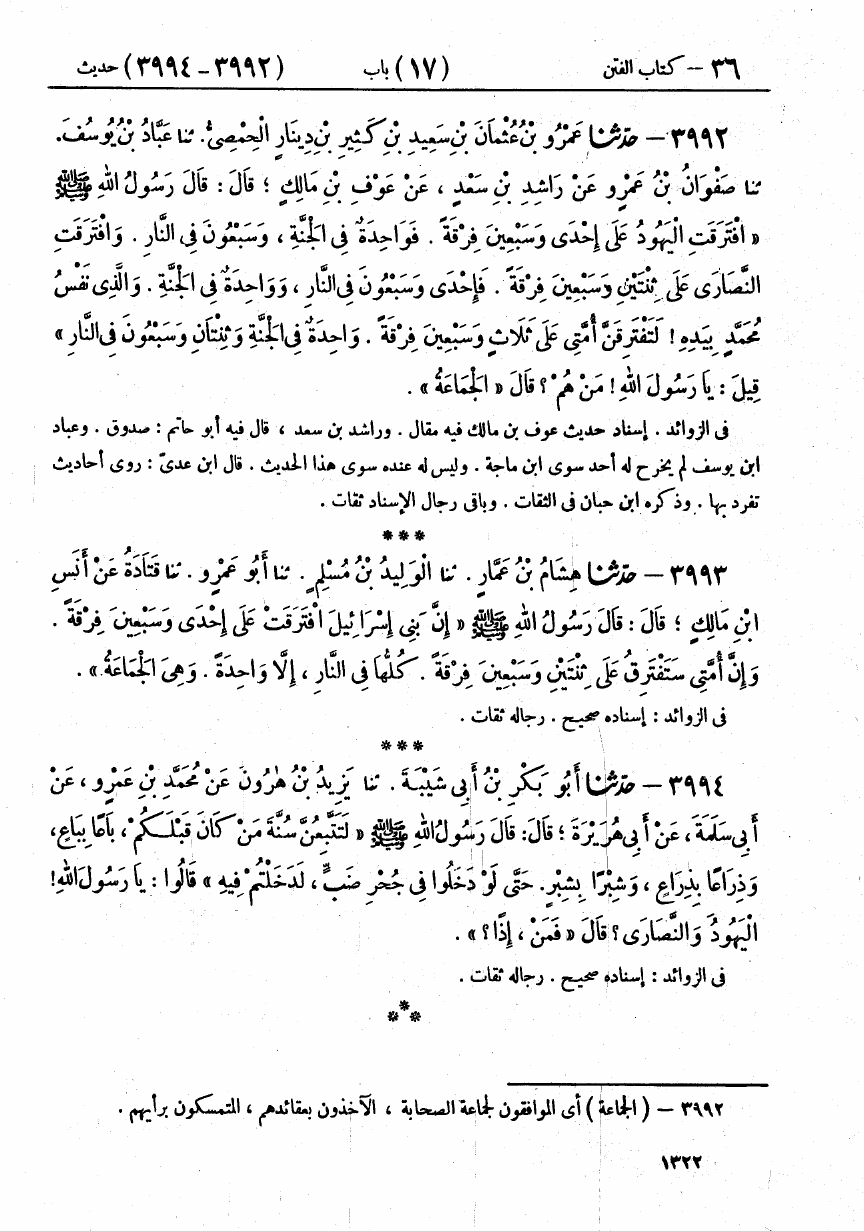 ٣٦ – كتاب الفتن (١٧) باب (٣٩٩٢ – ٣٩٩٤) حديث
٣٩٩٢ – حَدَّثَنَا عَمْرُو بْنُ عُثْمَانَ بْنِ سَعِيدِ بْنِ كَثِيرِ بْنِ دِينَارٍ الْحِمْصِيُّ. ثنا عَبَّادُ بْنُ يُوسُفَ.
ثنا صَفْوَانُ بْنُ عَمْرٍو عَنْ رَاشِدِ بْنِ سَعْدٍ ، عَنْ عَوْفِ بْنِ مَالِكٍ ؛ قَالَ : قَالَ رَسُولُ اللهِ ﷺ
« افْتَرَقَتِ الْيَهُودُ عَلَى إِحْدَى وَسَبْعِينَ فِرْقَةً . فَوَاحِدَةٌ فِى الْجَنَّةِ ، وَسَبْعُونَ فِى النَّارِ . وَافْتَرَقَتِ
النَّصَارَى عَلَى ثِنْتَيْنِ وَسَبْعِينَ فِرْقَةً . فَإِحْدَى وَسَبْعُونَ فِى النَّارِ ، وَوَاحِدَةٌ فِى الْجَنَّةِ . وَالَّذِى نَفْسُ
مُحَمَّدٍ بِيَدِهِ ! لَتَفْتَرِقَنَّ أُمَّتِى عَلَى ثَلَاثٍ وَسَبْعِينَ فِرْقَةً . وَاحِدَةٌ فِى الْجَنَّةِ وَثِنْتَانِ وَسَبْعُونَ فِى النَّارِ »
قِيلَ : يَا رَسُولَ اللهِ ! مَنْ هُمْ ؟ قَالَ « الْجَمَاعَةُ » .
فى الزوائد . إسناد حديث عوف بن مالك فيه مقال . وراشد بن سعد ، قال فيه أبو حاتم : صدوق . وعباد
ابن يوسف لم يخرح له أحد سوى ابن ماجة . وليس له عنده سوى هذا الحديث . قال ابن عدىّ : روى أحاديث
تفرد بها . وذكره ابن حبان فى الثقات . وباقى رجال الإسناد ثقات .
***
٣٩٩٣ – حَدَّثَنَا هِشَامُ بْنُ عَمَّارٍ . ثنا الْوَلِيدُ بْنُ مُسْلِمٍ . ثنا أَبُو عَمْرٍو . ثنا قَتَادَةُ عَنْ أَنَسِ
ابْنِ مَالِكٍ ؛ قَالَ : قَالَ رَسُولُ اللهِ ﷺ « إِنَّ بَنِى إِسْرَائِيلَ افْتَرَقَتْ عَلَى إِحْدَى وَسَبْعِينَ فِرْقَةً .
وَإِنَّ أُمَّتِى سَتَفْتَرِقُ عَلَى ثِنْتَيْنِ وَسَبْعِينَ فِرْقَةً . كُلُّهَا فِى النَّارِ ، إِلَّا وَاحِدَةً . وَهِىَ الْجَمَاعَةُ » .
فى الزوائد : إسناده صحيح . رجاله ثقات .
***
٣٩٩٤ – حَدَّثَنَا أَبُو بَكْرِ بْنُ أَبِى شَيْبَةَ . ثنا يَزِيدُ بْنُ هٰرُونَ عَنْ مُحَمَّدِ بْنِ عَمْرٍو ، عَنْ
أَبِى سَلَمَةَ ، عَنْ أَبِى هُرَيْرَةَ ؛ قَالَ: قَالَ رَسُولُ اللهِ ﷺ « لَتَتَّبِعُنَّ سُنَّةَ مَنْ كَانَ قَبْلَكُمْ ، بَاعًا بِبَاعٍ ،
وَذِرَاعًا بِذِرَاعٍ ، وَشِبْرًا بِشِبْرٍ. حَتَّى لَوْ دَخَلُوا فِى جُحْرِ ضَبٍّ ، لَدَخَلْتُمْ فِيهِ » قَالُوا : يَا رَسُولَ اللهِ!
الْيَهُودُ وَالنَّصَارَى ؟ قَالَ « فَمَنْ ، إِذًا ؟ » .
فى الزوائد : إسناده صحيح . رجاله ثقات .
***
٣٩٩٢ – ( الجماعة ) أى الموافقون لجماعة الصحابة ، الآخذون بعقائدهم ، المتمسكون برأيهم .
١٣٢٢